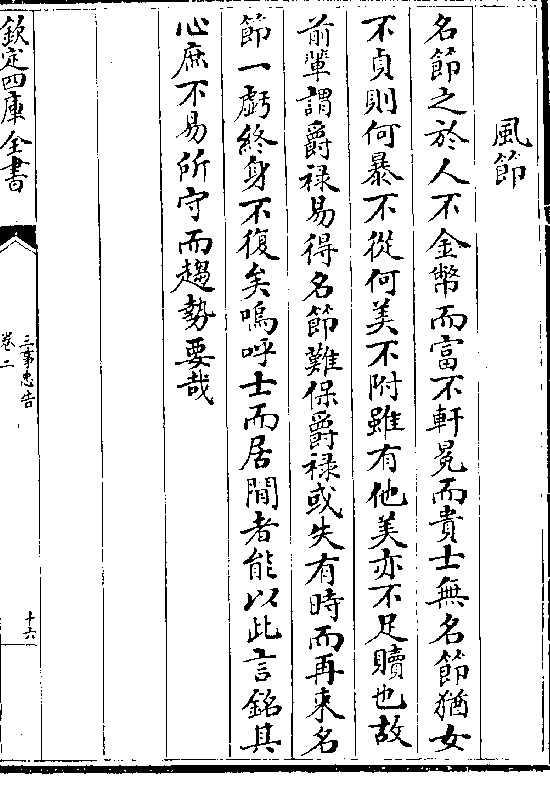 風節
名節之於人不金幣而富不軒冕而貴士無名節猶女
不貞則何暴不從何美不附雖有他美亦不足贖也故
前輩謂爵禄易得名節難保爵禄或失有時而再來名
節一虧終身不復矣嗚呼士而居閒者能以此言銘其
心庶不易所守而趨勢要哉
欽定四庫全書
三事忠告
卷二
十六